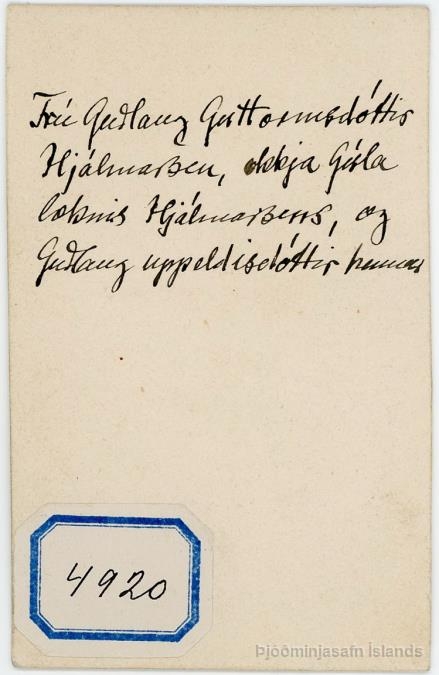 Frú Guðlaug Guttormsdóttir
Hjálmarsen, ekkja Gísla
læknis Hjálmarsens, og
Guðlaug uppeldisdóttir hennar
4920
Þjóðminjasafn Íslands